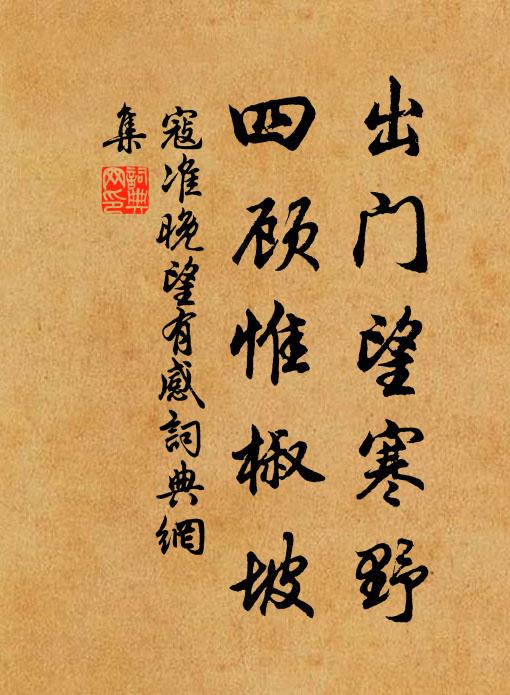 出门望寒野
四顾惟椒坡
寇准晚望有感词典網
集
詞典網印